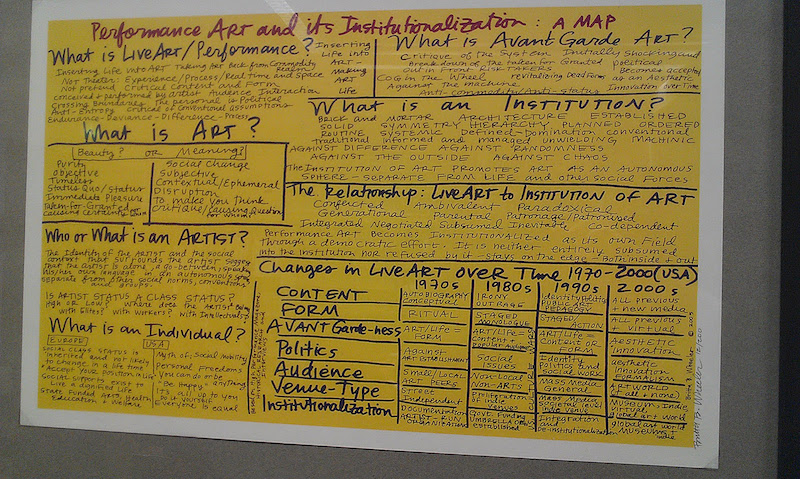 Performance Art and its Institutionalization: A MAP
What is Live Art/Performance?
Inserting Life into Art taking her Back from Commodity Realm
Not Theater - Experience/Process/Real time and Space
Not pretend Critical Content and Form
conceived & performed by artist Audience Interaction
Crossing Boundaries The personal is Political
Anti-Entropy Critical of Conventional assumptions
Endurance-Deviance-Difference-Process
Inserting
Life into
ART -
Making
ART
Life
What is Avant Garde Art?
Critique of the System Initially shocking and
Break down of the taken for Granted political
Out in Front RISK TAKERS Becomes accepted
Cog in the Wheel revitalizing Dead Forms as an Aesthetic
Against the machine Innovation over Time
Anti-commodity/Anti-status
What is an Institution?
Brick and Mortar Architecture Established
SOLID SYMMETRY HIERARCHY PLANNED ORDERED
ROUTINE SYSTEMIC Defined-Domination conventional
traditional informed and managed unyielding MACHINIC
AGAINST DIFFERENCE AGAINST RANDOMNESS
AGAINST THE OUTSIDE AGAINST CHAOS
The Institution of Art promotes Art as an Autonomous
Sphere - Separate from Life and other Social Forces
What is Art?
Beauty? or Meaning?
Purity
Objective
Timeless
Status Quo/status
Immediate Pleasure
Taken for Granted
Social Change
Subjective
Contextual/Ephemeral
Disruption
To make you Think
Critique/causing Question
for whom?
The Relationship: Live Art to Institution of Art
Conflicted Ambivalent Paradoxical
Generational Parental Patronage/Patronised
Integrated Negotiated Subsumed Inevitable Co-dependent
Performance Art Becomes Institutionalized as its own Field
Through a democratic effort. It is neither entirely subsumed
into the institution nor refused by it - stays on the edge - Both inside & out
Who or What is an Artist?
The Identity of the Artist and the social
context that surrounds the artist suggest
that the artist is alone, a go-between, speaking
his/her own language in an autonomous sphere
separate from other social norms, conventions
and groups.
Is Artist Status a Class Status?
High or Low? Where does the Artist Belong
with Elites? with Workers? with Intellectuals?
What is an Individual?
Europe
Social class status is
inherited and not likely
to change in a life time
"Accept Your Position in Life"
Social supports exist to
Live a dignified Life
State Funded Arts, Health
Education & Welfare
USA
Myth of Social Mobility
Personal Freedoms
You can do or be
"Be Happy" anything
It's all up to you
Do it Yourself
Everyone is equal
Changes in Live Art over Time 1970-2000 (USA)
1970s 1980s 1990s 2000s
CONTENT AUTOBIOGRAPHY CONCEPTUAL IRONY OUTRAGE Identity Politics Public Art Pedagogy All previous + new media
FORM RITUAL STAGED MONOLOGUE STAGED/ACTION All previous + virtual
AVANT Garde-ness Art/Life = Form Art/Life = Content + Art/Life = Content or Form Aesthetic Innovation
Politics Against Establishment Social Issues Identity Politics and Social work Aesthetic Innovation Formalism
Audience Small/Local Art Peers Non-Local Non-Arts Mass Media General Artworld (+ all + none)
Venue-Type Street Independent Proliferation of Indie Venues Mass Media Museum, Indie Virtual
Institutionalization Documentation Artist-Run Organizations Govt Funding Umbrella Orgs established Integration and De-institutionalization global art world Museums